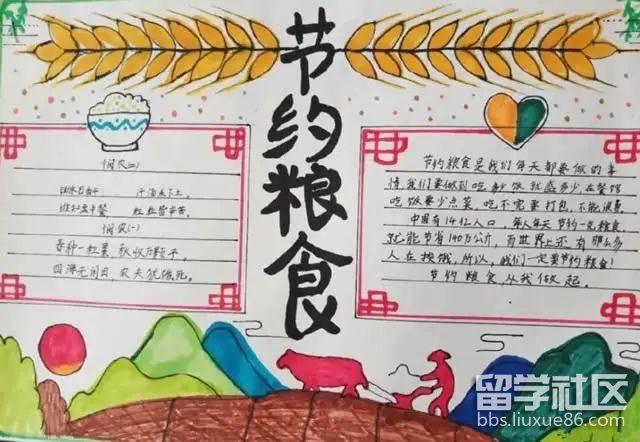 节约粮食
悯农(二)
锄禾日当午 汗滴禾下土,
谁知盘中餐 粒粒皆辛苦。
悯农(一)
春种一粒粟,秋收万颗子,
四海无闲田,农夫犹饿死。
节约粮食是我们每天都要做的事
情,我们要做到吃多少饭就盛多少,在餐馆
吃饭要少点菜,吃不完要打包,不能浪费。
中国有14亿人口,每人每天节约一见粮食
就能节省140万公斤,而世界上还有那么多
人在挨饿,所以,我们一定要节约粮食!
节约粮食,从我做起。
留学社区
bbs.liuxue86.com